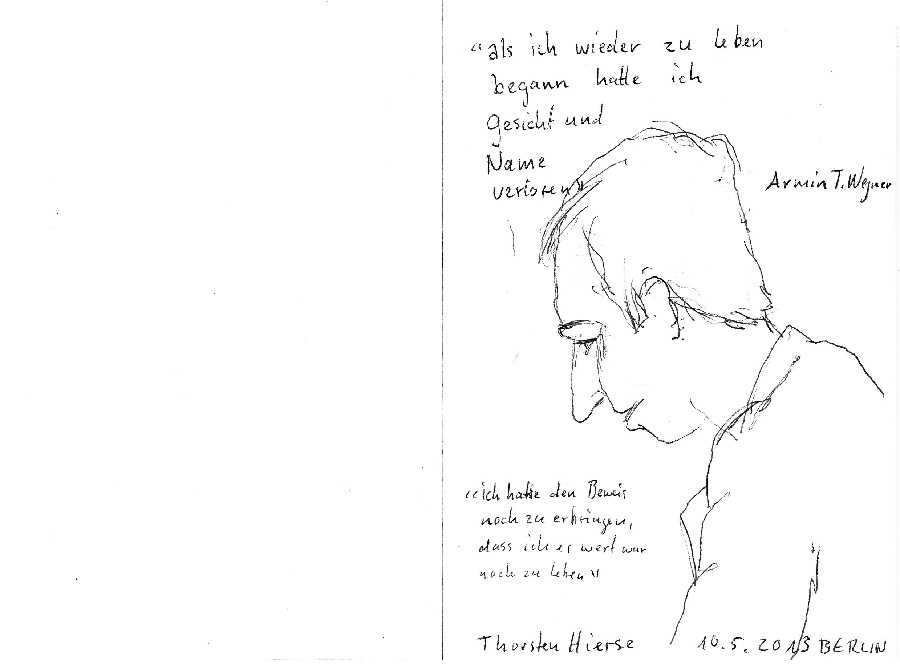 "als ich wieder zu leben
begann hatte ich
Gesicht und
Name
verloren"
Armin T. Wegner
"ich hatte den Beweis
noch zu erbringen,
dass ich es wert war
noch zu leben"
Thorsten Hierse 10.5.2013 BERLIN